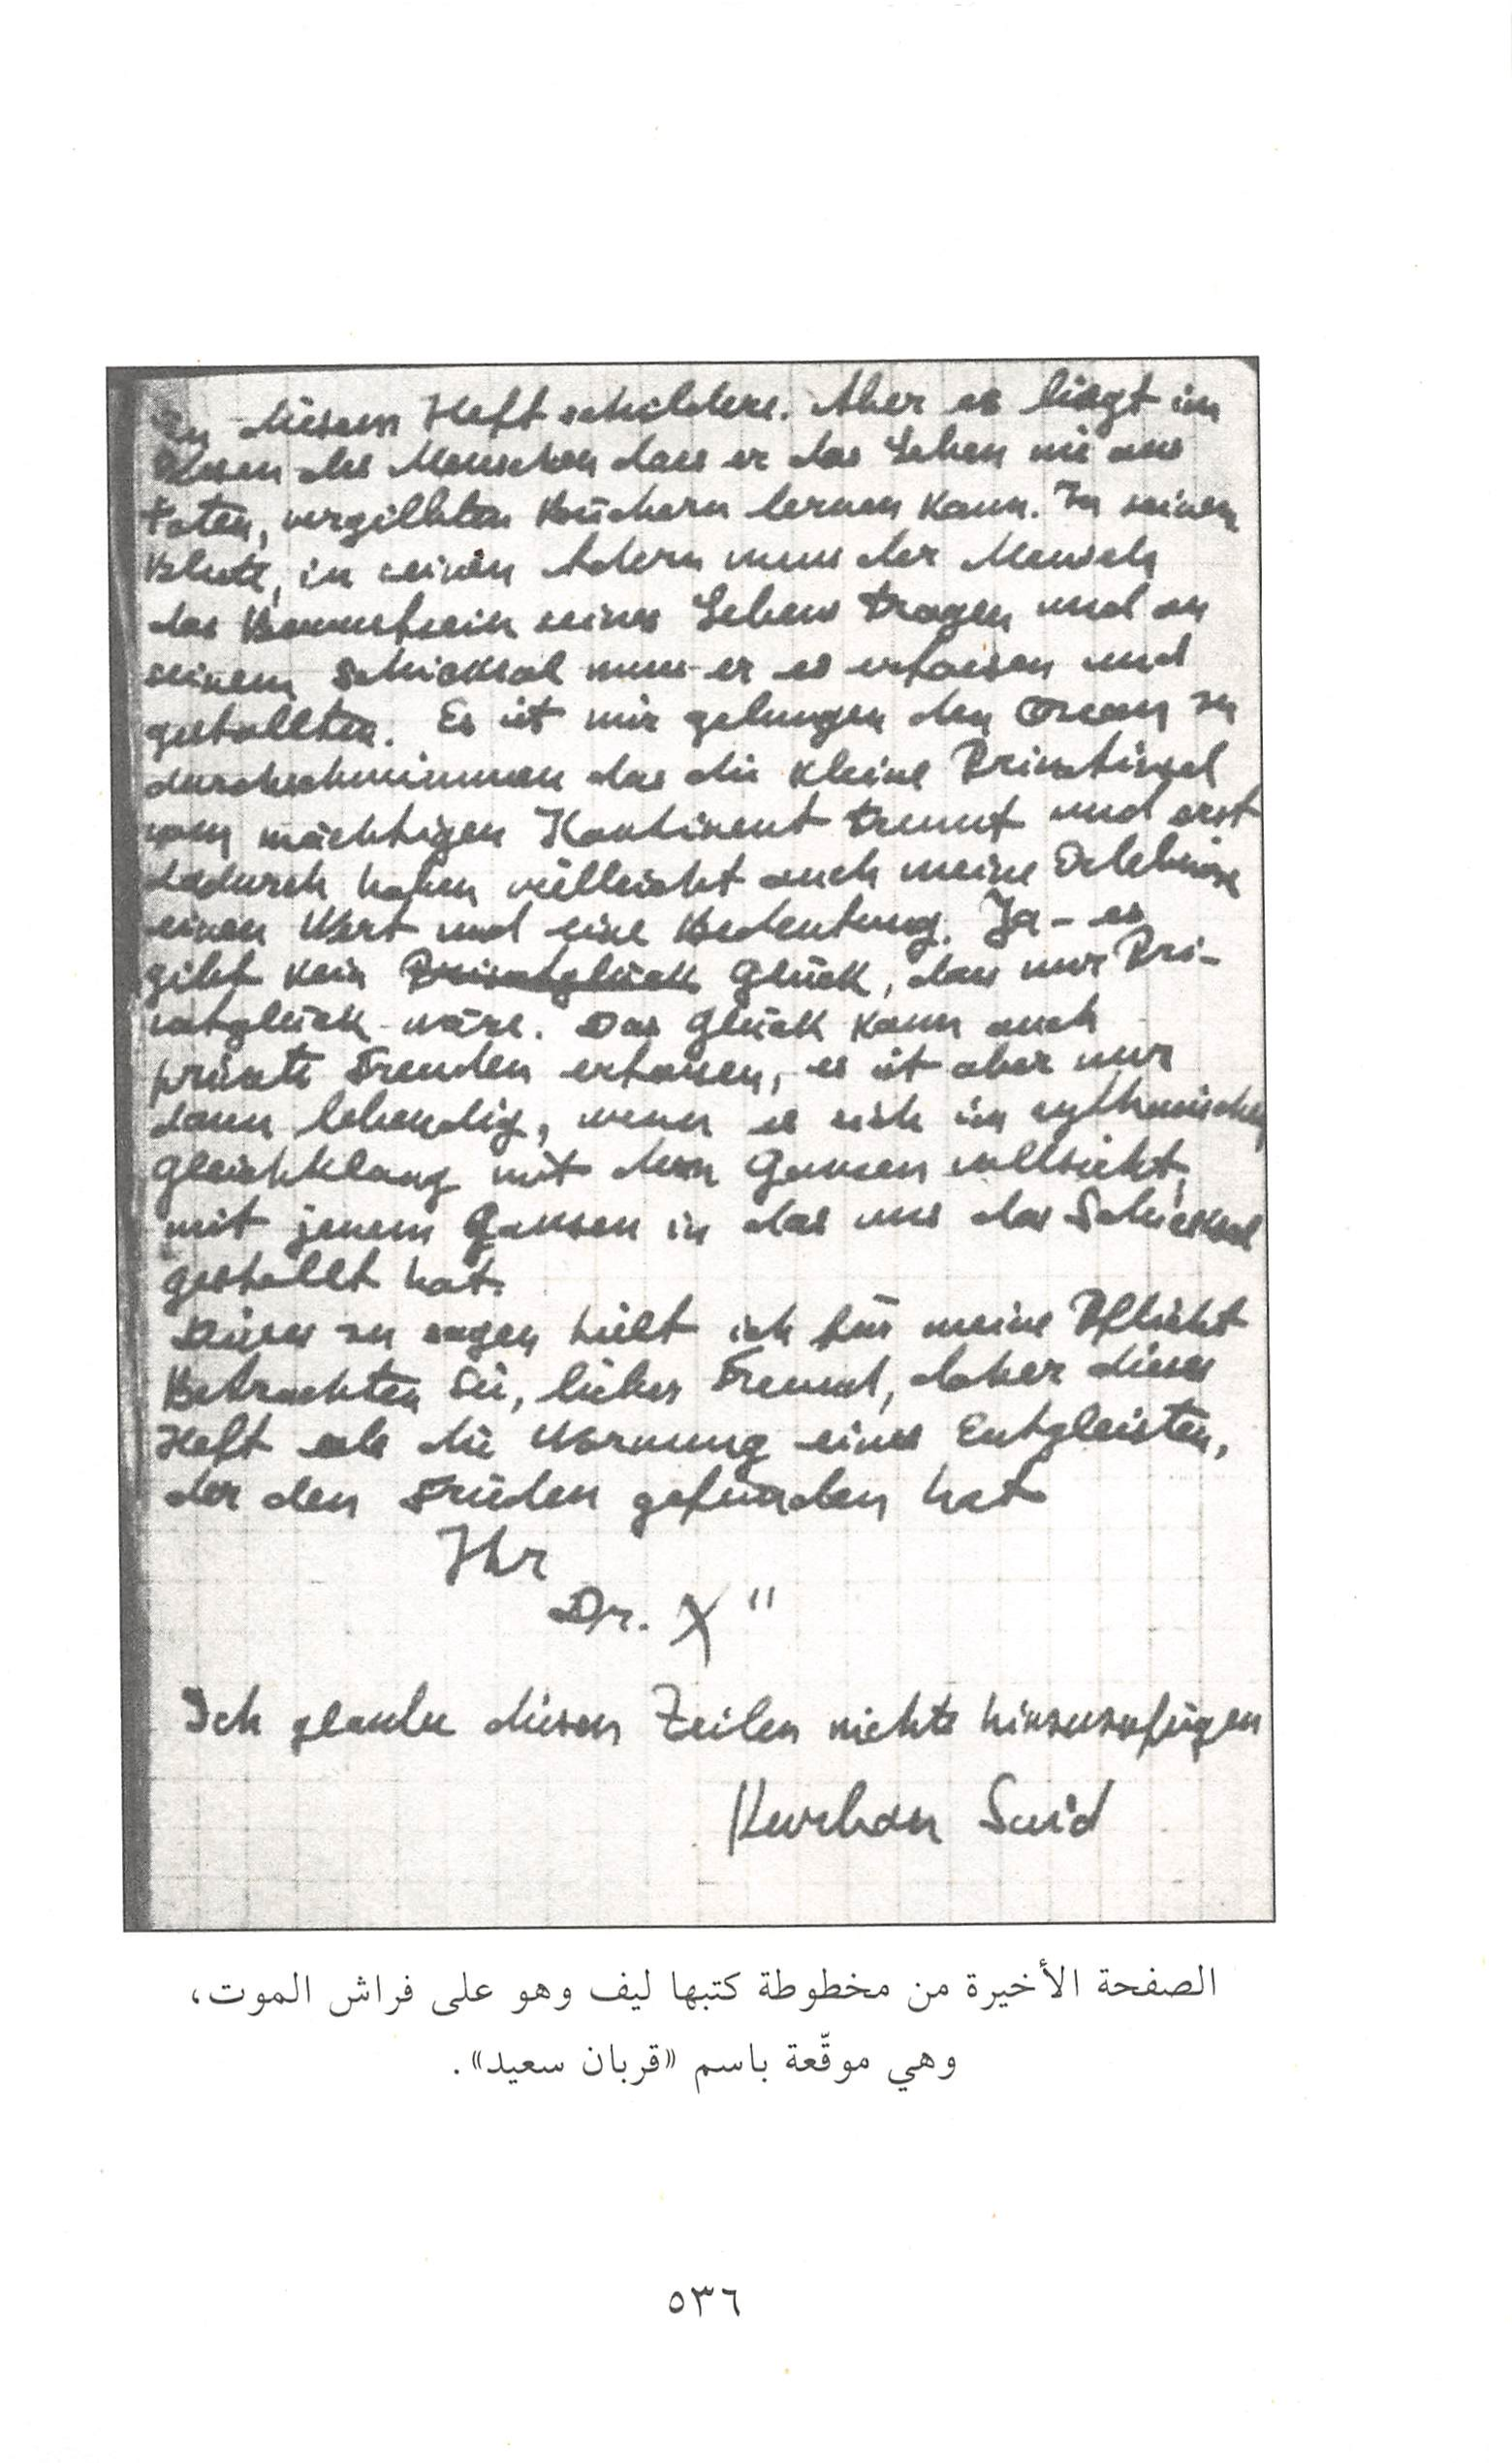 in diesem Heft schildere. Aber es liegt im
Wesen des Menschen dass er das Leben nie aus
toten, vergilbten Büchern lernen kann. In seinem
Blute, in seinen Adern muss der Mensch
das Bewusstsein seines Lebens tragen und an
seinem Schicksal muss er es erfassen und
gestallten. Es ist mir gelungen den Ocean zu
durchschwimmen das die kleine Privatinsel
vom mächtigen Kontinent trennt und erst
dadurch haben vielleicht auch meine Erlebnisse
einen Wert und eine Bedeutung. Ja - es
gibt kein Privatglück Glück, das nur Pri-
vatglück wäre. Das Glück kann auch
private Freuden erfassen, es ist aber nur
dann lebendig, wenn es sich im rythmischen
Gleichklang mit dem Gansen vollzieht,
mit jenem Gansen in das uns das Schicksal
gestellt hat.
Dieses zu sagen hielt ich für meine Pflicht
Betrachten Sie, lieber Freund, daher dieses
Heft als die Warnung eines Entgleisten,
der den Frieden gefunden hat
Ihr
Dr. X"
Ich glaube diesen Zeilen nichts hinzuzufügen
Kurban Said
الصفحة الأخيرة من مخطوطة كتبها ليف وهو على فراش الموت،
وهي موقّعة باسم «قربان سعيد».
٥٣٦